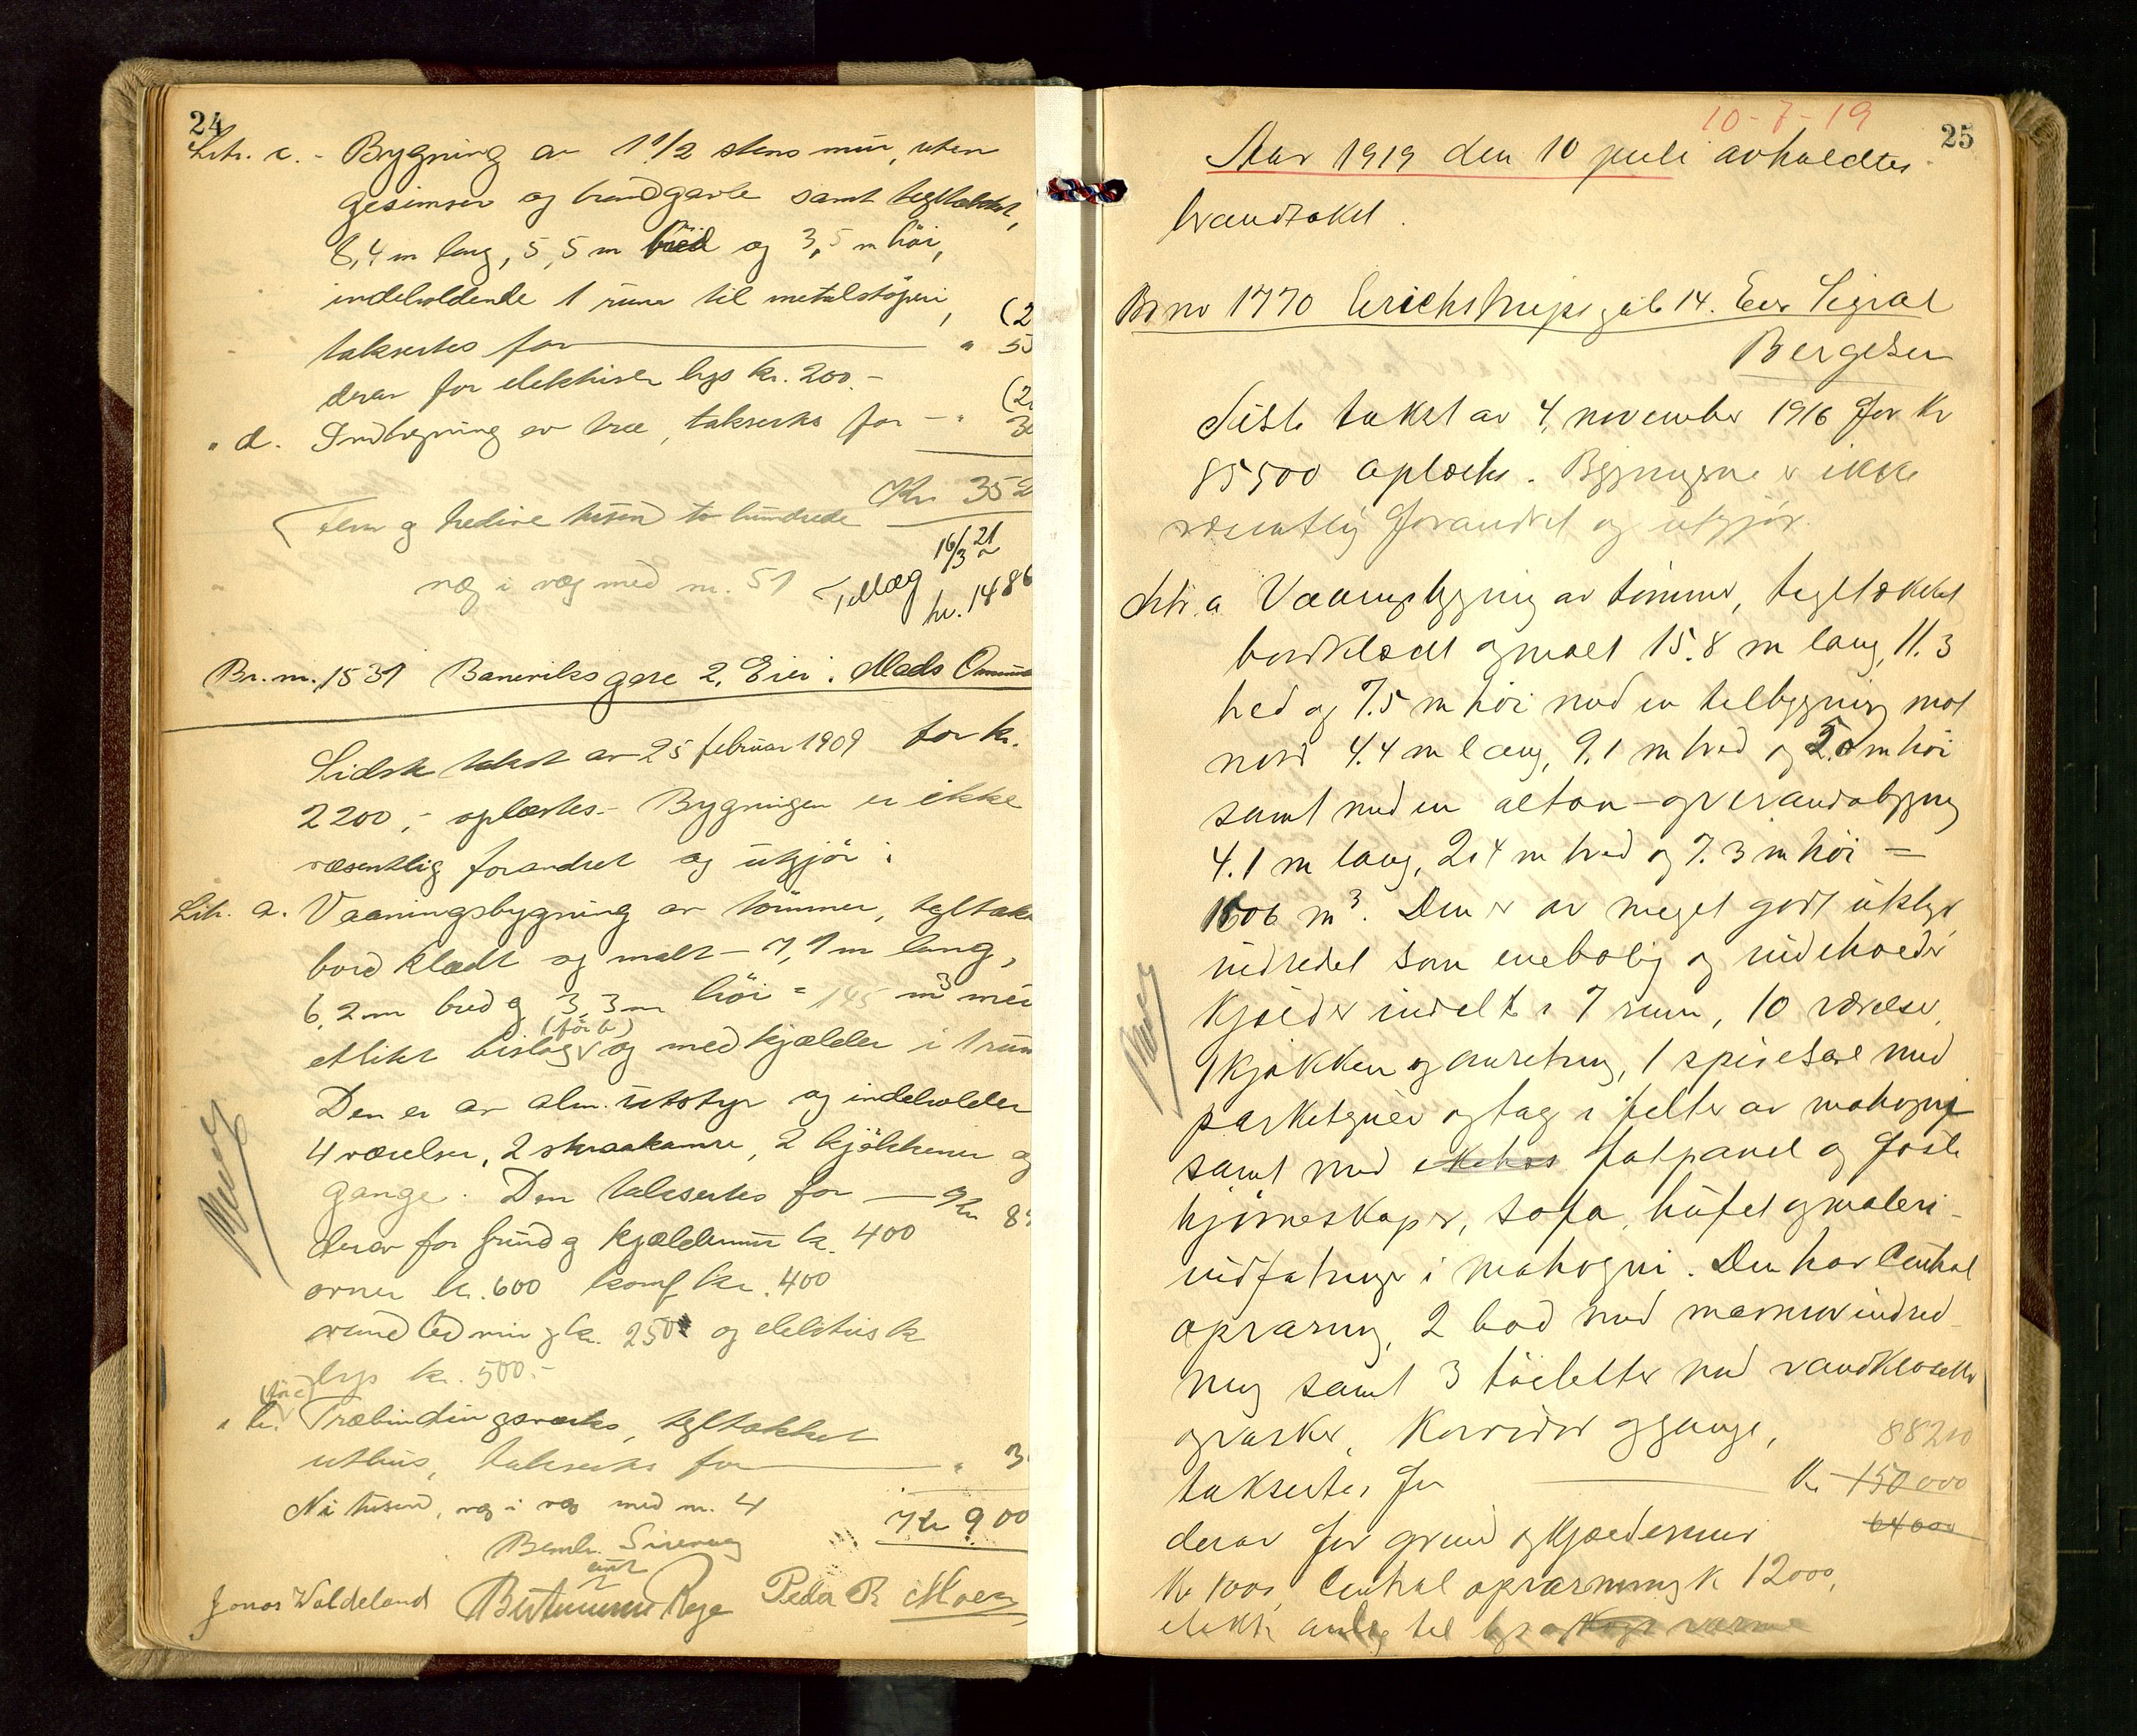 24
Litr. c. - Bygning av 1 1/2 stens mur, uten
gesimser og brandgavle samt tegltækket,
8,4 m lang, 5,5 m bred og 3,5 m höi,
indeholdende 1 rum til metalstöperi, (2
takseres for " 55
derav for elektrisk lys kr. 200.- (2
" d. Indbygning av træ, takseres for - " 30
Kr 352
og tredive tusen to hundrede
væg i væg med nr. 51 Tillæg 16/3 21
kr. 1486
Br. nr. 1531 Baneviksgate 2. Eier: Mads
Sidste takst av 25 februar 1909 for kr.
2200,- oplæstes. - Bygningen er ikke
væsentlig forandret og utgjör:
Litr. a. Vaaningsbygning av tömmer, tegltæk
bordklædt og malt - 7,1 m lang,
6,2 m bred og 3,3 m höi = 145 m3 med
etlikt bislag (för b) og med kjælder i 1 rum
Den er av alm. utstyr og indeholder
4 værelser, 2 skraakamre, 2 kjökkener og
gange. Den takseres for — Kr 8
derav for grund og kjældermur kr. 400
ovner kr. 600 komf kr. 400
vandledning kr. 250 og elektrisk
lys kr. 500.-
(för c)
" b. Træbindingsverks, tegltækket
uthus, takseres for " 3
Ni tusen, væg i væg med nr. 4
Kr 900
Bernh. Sirevaag
Jonas Waldeland Peder R Moen
10-7-19
25
Aar 1919 den 10 juli avholdtes
brandtakst.
Br no 1770 Erichstrupsgt 14. Eier Sigval
Bergesen
Siste takst av 4. november 1916 for kr
85500 oplæstes. Bygningene er ikke
væsentlig forandret og utgjör.
Litr. a Vaaningsbygning av tömmer, tegltækket
bordklædt og malt 15.8 m lang, 11.3
bred og 7.5 m höi med en tilbygning mot
nord 4.4 m lang, 9.1 m bred og 5.0 m höi
samt med en altan- og verandabygning
4.1 m lang, 2.4 m bred og 7.3 m höi =
1606 m3. Den er av meget godt utstyr
indredet som enebolig og indeholder
kjælder inddelt i 7 rum, 10 værelser,
1 kjökken og anretning, 1 spisesal med
parketgulv og tag i felter av mahogni
samt med fatpanel og faste
hjörneskaper, sofa, büfet og maleri-
indfatninger i mahogni. Den har Central
opvarmning, 2 bad med marmorindred-
ning samt 3 toiletter med vandklosetter
og vasker, korridor og gange, 88200
takseres for — Kr 150000
64000
derav for grund og kjældermur
Kr 1000, Central opvarmning kr 12000,
elektr anlæg til lys og koge varme